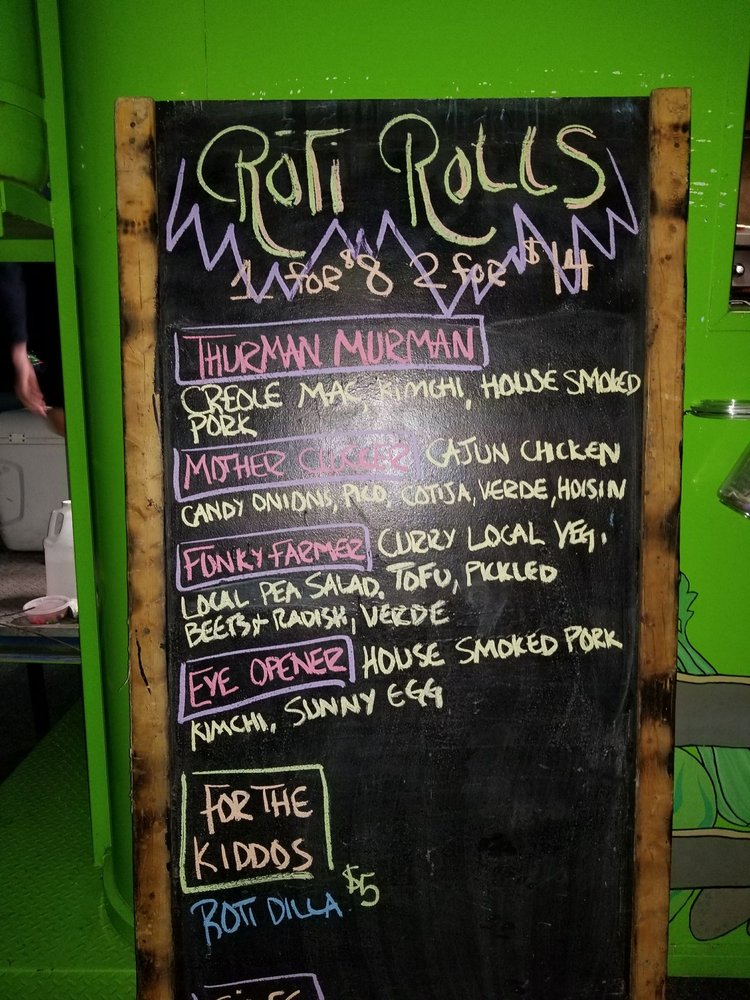 ROTI ROLLS
1 for $8 2 for $14
THURMAN MURMAN
CREOLE MAC, KIMCHI, HOUSE SMOKED
PORK
MOTHER CLUCKER CAJUN CHICKEN
CANDY ONIONS, PICO, COTIJA, VERDE, HOISIN
FUNKY FARMER CURRY LOCAL VEG,
LOCAL PEA SALAD, TOFU, PICKLED
BEETS + RADISH, VERDE
EYE OPENER HOUSE SMOKED PORK
KIMCHI, SUNNY EGG
FOR THE
KIDDOS
ROTI DILLA $5